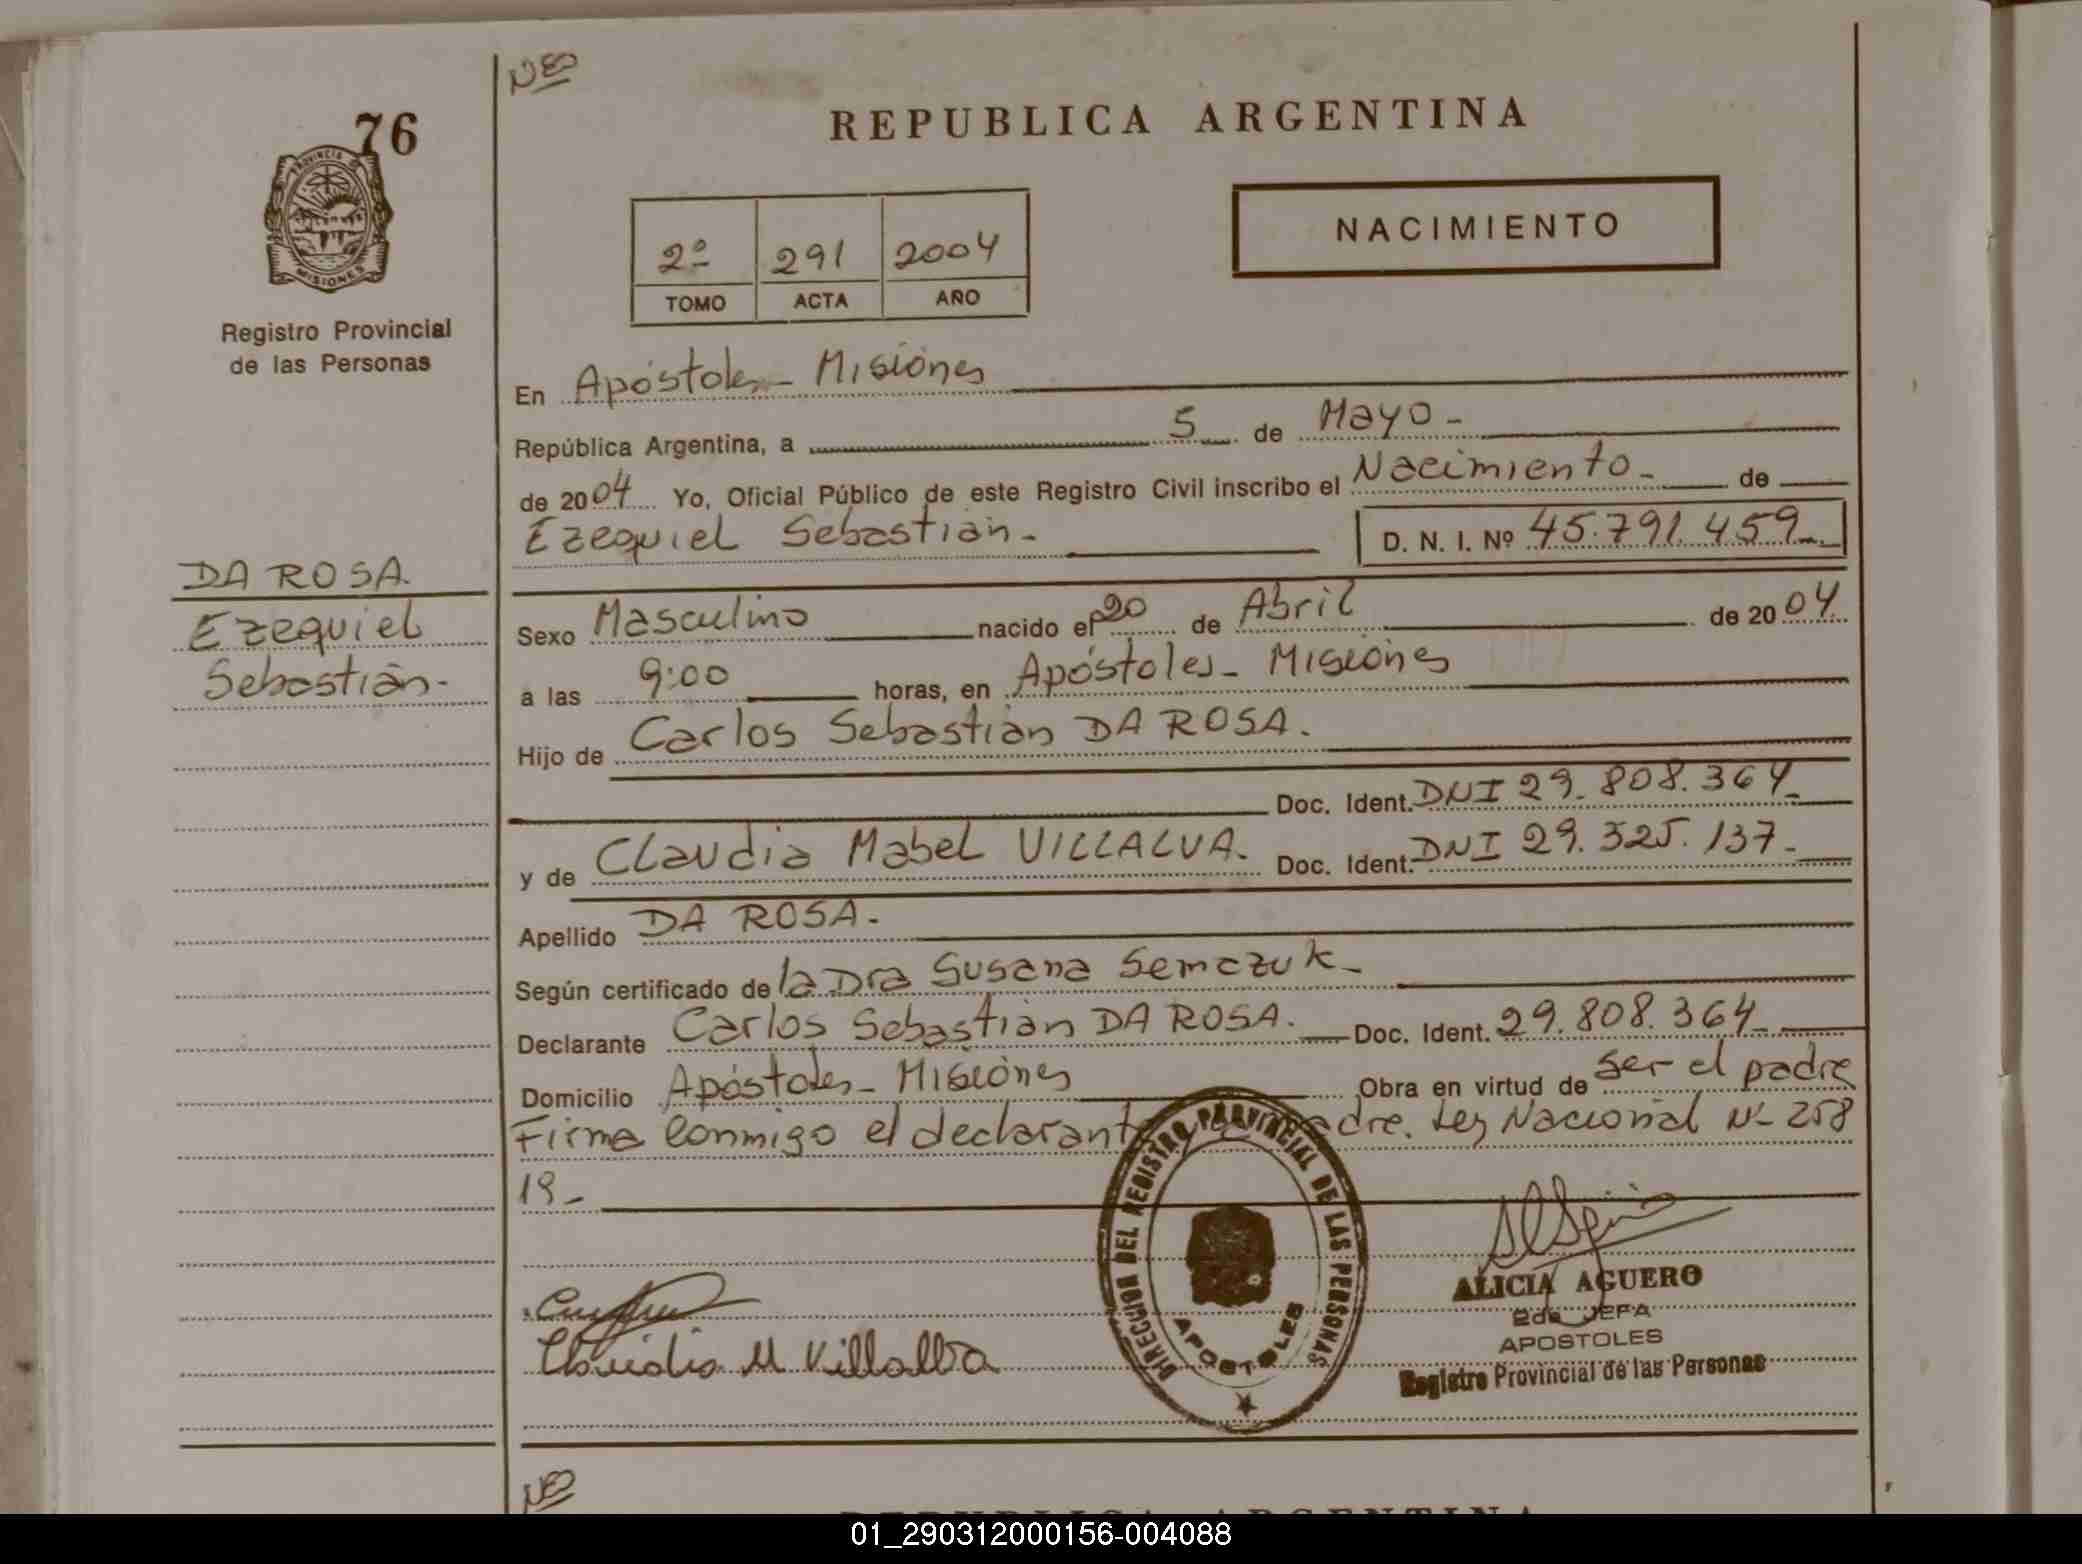 NEO
76
REPUBLICA ARGENTINA
PROVINCIA DE
MISIONES
NACIMIENTO
2º 291 2004
TOMO ACTA AÑO
Registro Provincial
de las Personas
En Apóstoles - Misiones
República Argentina, a 5 de Mayo -
de 2004 Yo, Oficial Público de este Registro Civil inscribo el Nacimiento - de
Ezequiel Sebastián - D. N. I. Nº 45.791.459 -
DA ROSA.
Ezequiel
Sebastián -
Sexo Masculino nacido el 20 de Abril de 2004.
a las 9:00 horas, en Apóstoles - Misiones
Hijo de Carlos Sebastián DA ROSA.
Doc. Ident. DNI 29.808.364 -
y de Claudia Mabel VILLALVA. Doc. Ident. DNI 29.325.137 -
Apellido DA ROSA -
Según certificado de la Dra Susana Semczuk -
Declarante Carlos Sebastián DA ROSA. Doc. Ident. 29.808.364 -
Domicilio Apóstoles - Misiones Obra en virtud de ser el padre
Firma conmigo el declarante adre. Ley Nacional Nº 258
19 -
DIRECCION DEL REGISTRO PROVINCIAL DE LAS PERSONAS
APOSTOLES
ALICIA AGUERO
2da JEFA
APOSTOLES
Registro Provincial de las Personas
Claudia M Villalba
NEO
REPUBLICA ARGENTINA
01_290312000156-004088